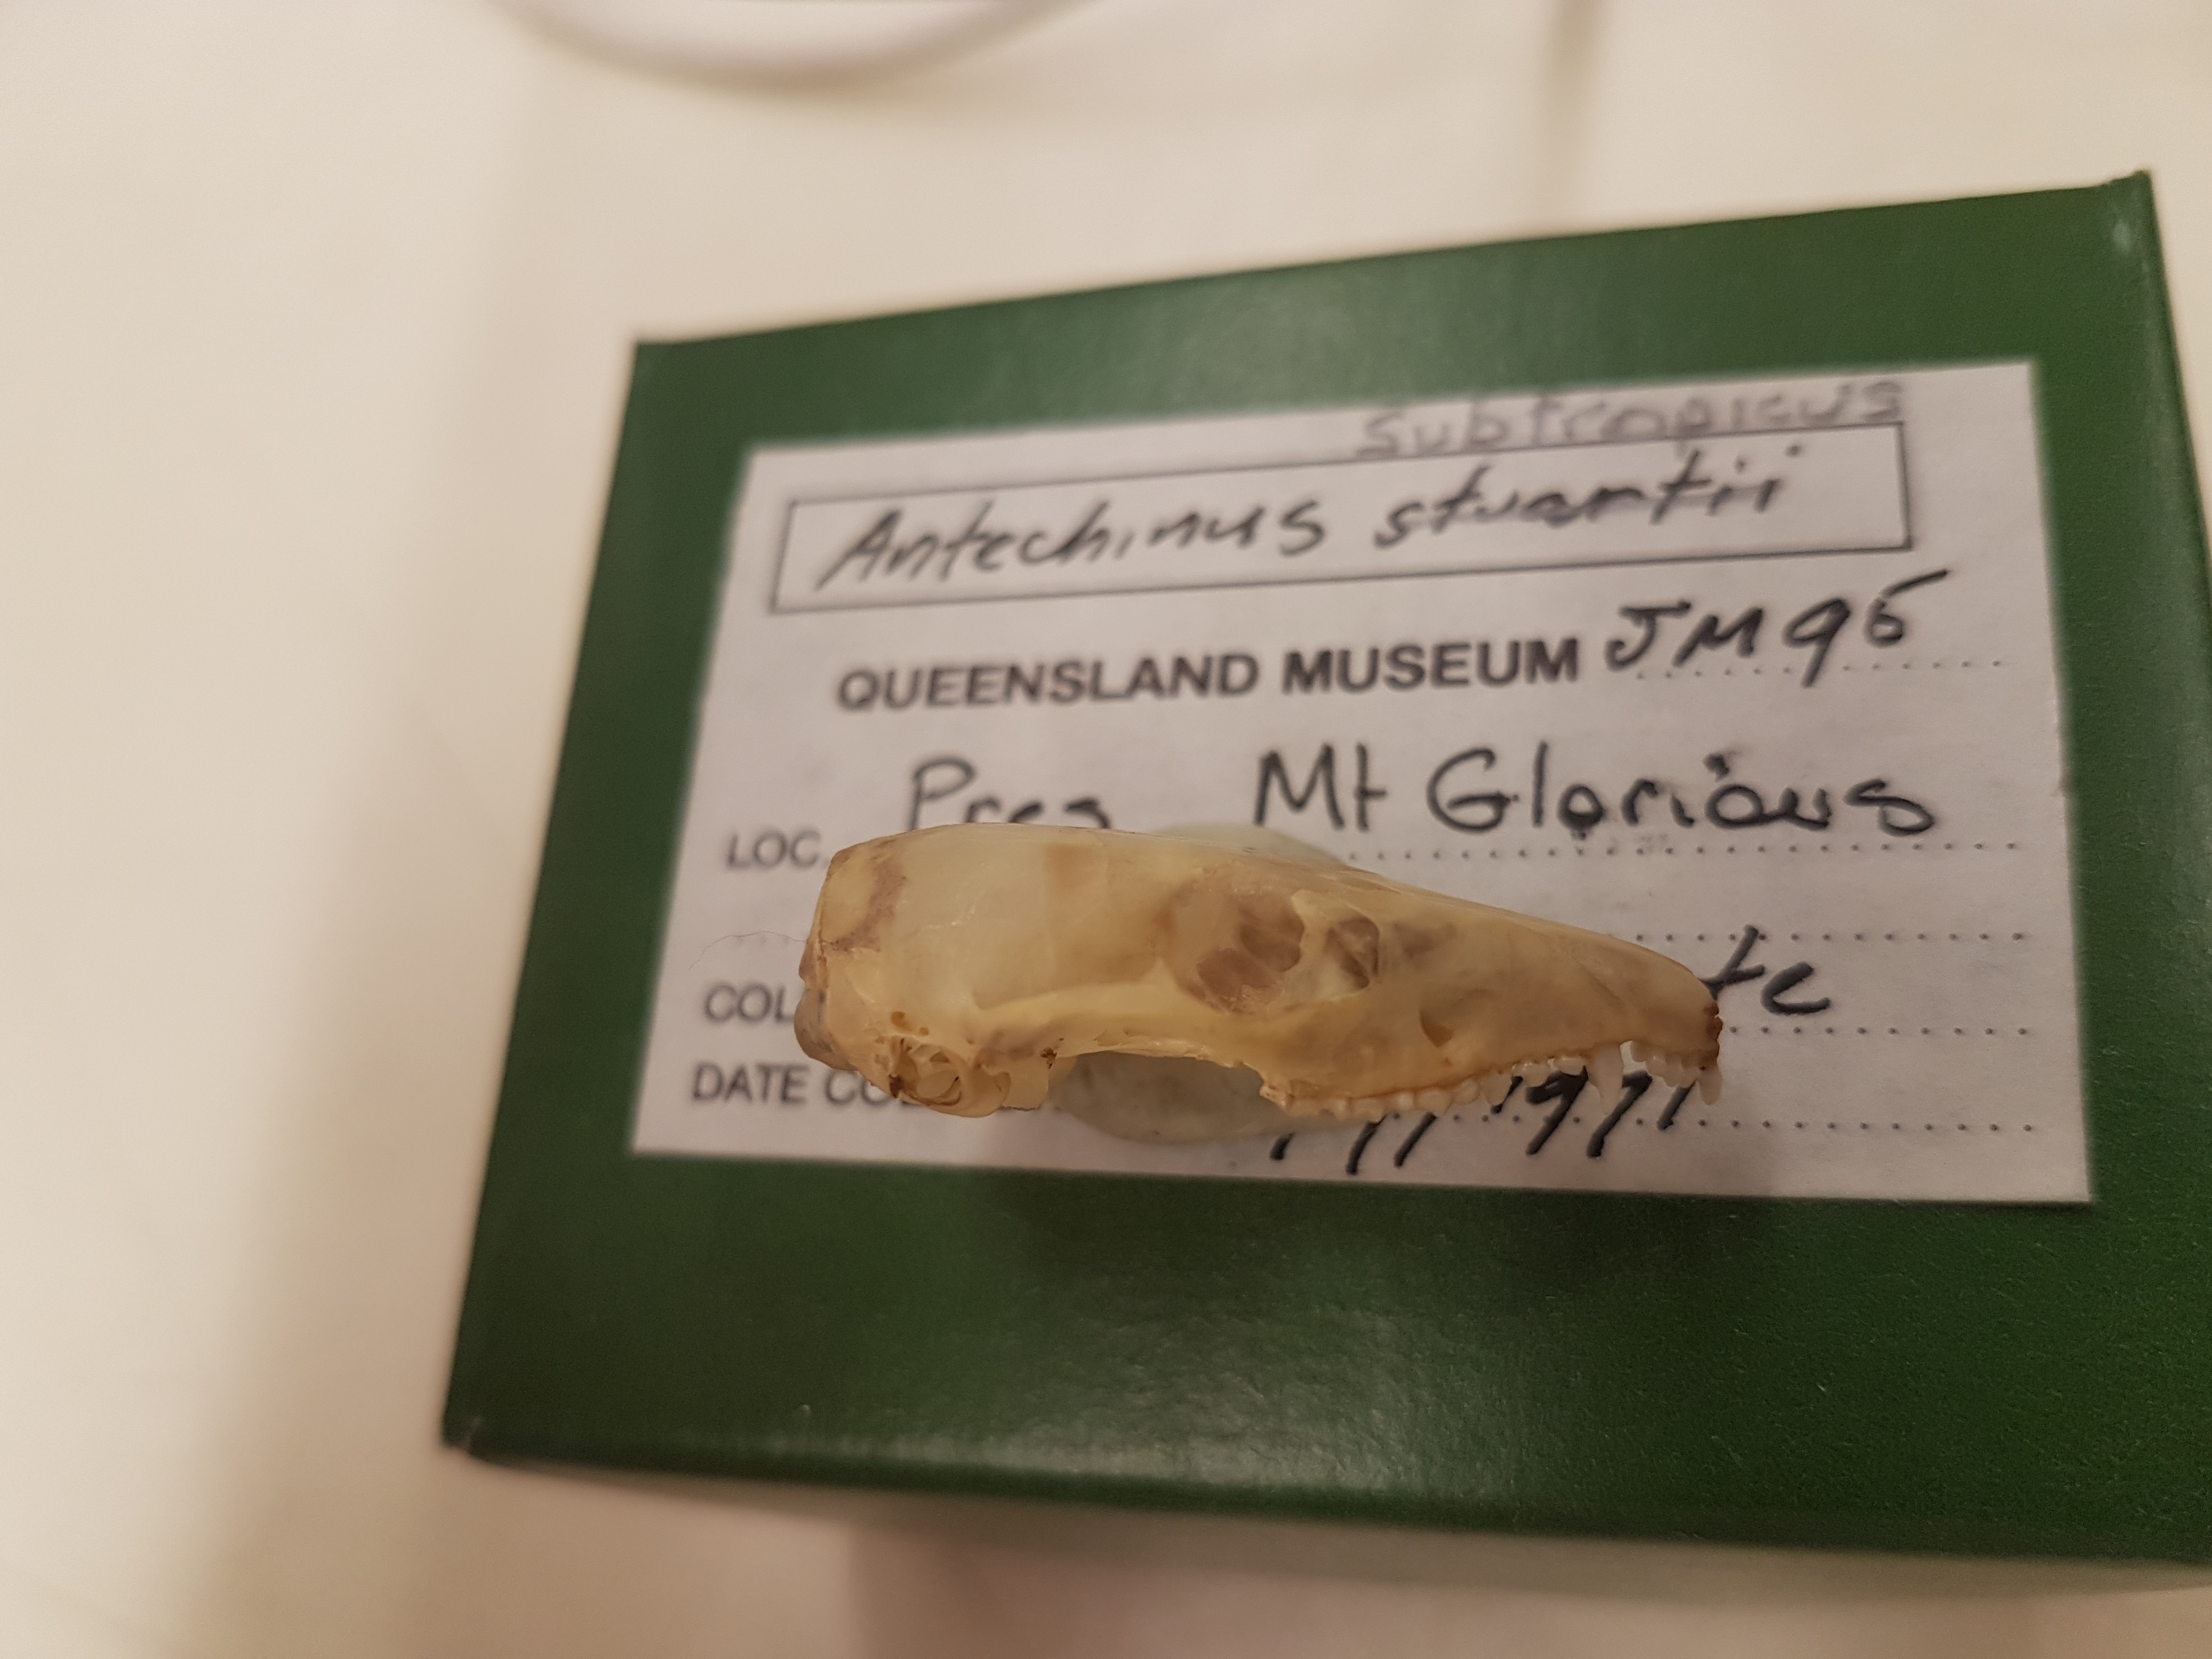 subtropicus
Antechinus stuartii
QUEENSLAND MUSEUM JM965
LOC. Prea Mt Glorious
COL
DATE CO 1977